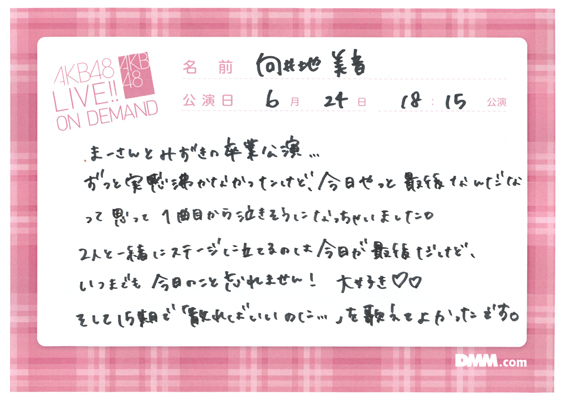 AKB48
LIVE!!
ON DEMAND
AKB
48
名前 向井地 美音
公演日 6月 24日 18:15 公演
まーさんとみずきの卒業公演…
ずっと実感沸かなかったけど、今日やっと最後なんだな
って思って1曲目から泣きそうになっちゃいました。
2人と一緒にステージに立てるのは今日が最後だけど、
いつまでも今日のこと忘れません! 大好き♡♡
そして15期で「散れればいいのに…」を歌えてよかったです。
DMM.com